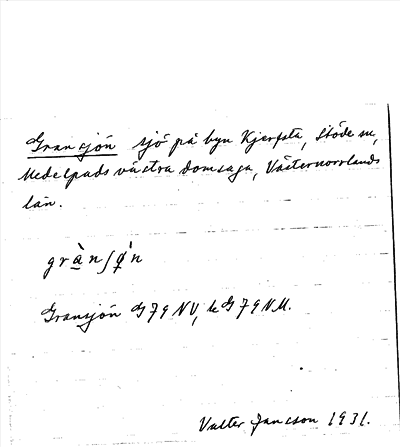 Gransjön sjö på byn Kjerfsta, Stöde sn,
Medelpads västra domsaga, Västernorrlands
län.
gràn∫ǿn
Gransjön G79 NV, k G79 NM.
Valter Jansson 1931.